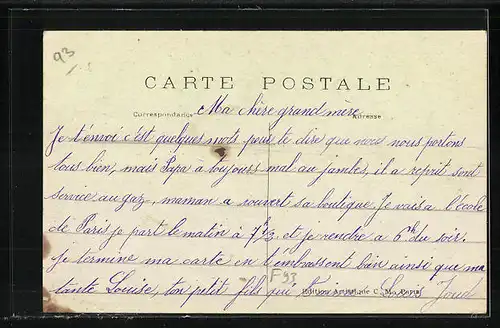 93
CARTE POSTALE
Correspondance Adresse
Ma chère grand mère
Je t'envoi c'est quelques mots pour te dire que nous nous portons
tous bien, mais Papa a toujours mal au jambe, il a reprit sont
service au gaz, maman a rouvert sa boutique. Je vais a l'école
de Paris je part le matin à 7h½ et je rendre a 6h du soir.
Je termine ma carte en t'embrassent bien ainsi que ma
F 93
tante Louise, ton petit fils qui t'aime Louis
Edition C. M. Paris